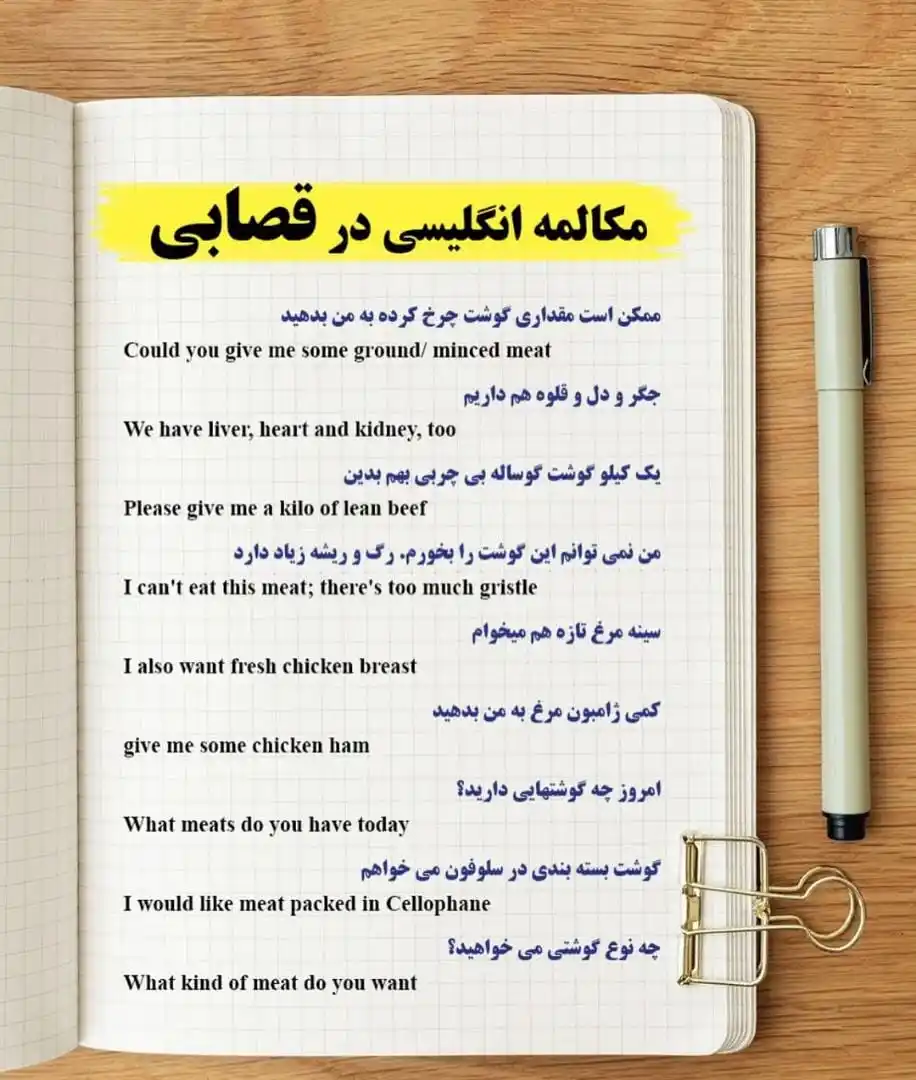 مکالمه انگلیسی در قصابی
ممکن است مقداری گوشت چرخ کرده به من بدهید
Could you give me some ground/ minced meat
جگر و دل و قلوه هم داریم
We have liver, heart and kidney, too
یک کیلو گوشت گوساله بی چربی بهم بدین
Please give me a kilo of lean beef
من نمی توانم این گوشت را بخورم. رگ و ریشه زیاد دارد
I can't eat this meat; there's too much gristle
سینه مرغ تازه هم میخوام
I also want fresh chicken breast
کمی ژامبون مرغ به من بدهید
give me some chicken ham
امروز چه گوشتهایی دارید؟
What meats do you have today
گوشت بسته بندی در سلوفون می خواهم
I would like meat packed in Cellophane
چه نوع گوشتی می خواهید؟
What kind of meat do you want